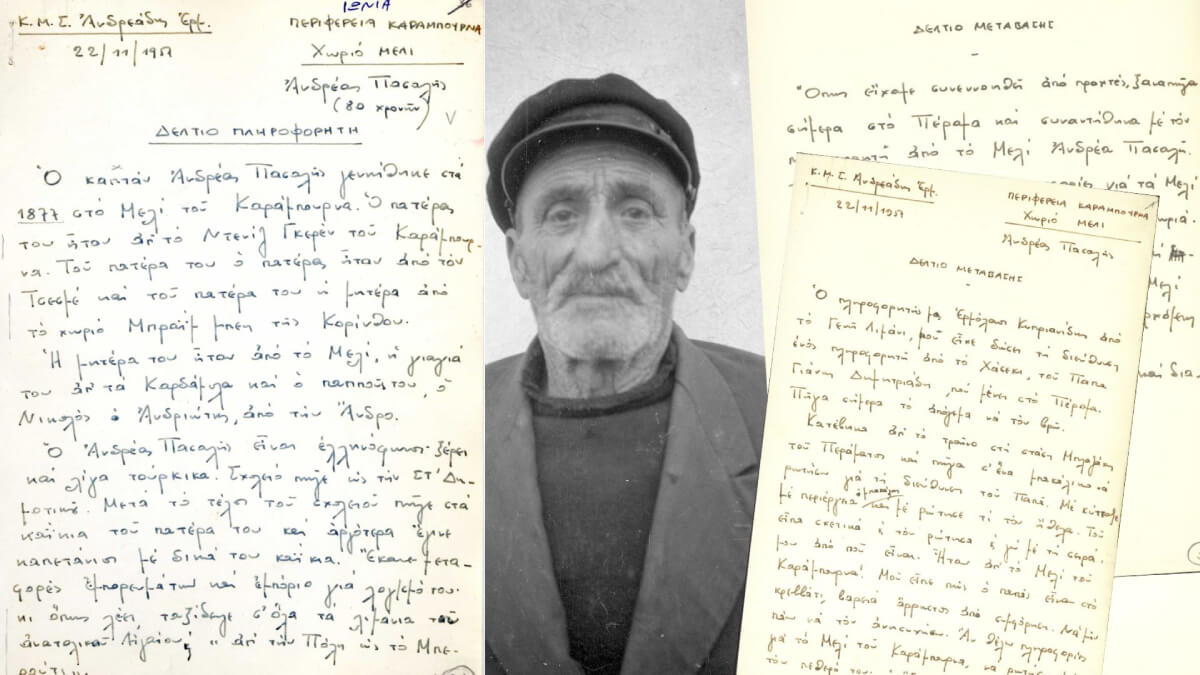 ΙΩΝΙΑ
Κ.Μ.Σ. Ἀνδρεάδης Ἑρμ.
22/11/1957
ΠΕΡΙΦΕΡΕΙΑ ΚΑΡΑΜΠΟΥΡΝΑ
Χωριό ΜΕΛΙ
Ἀνδρέας Πασαλῆς
(80 χρονῶν)
ΔΕΛΤΙΟ ΠΛΗΡΟΦΟΡΗΤΗ
Ὁ καπτάν Ἀνδρέας Πασαλῆς γεννήθηκε στά
1877 στό Μελί τοῦ Καράμπουρνα. Ὁ πατέρας
του ἦταν ἀπ τό Ντενίζ Γκερέν τοῦ Καράμπουρ-
να. Τοῦ πατέρα του ὁ πατέρας ἦταν ἀπό τόν
Τσεσμέ καί τοῦ πατέρα του ἡ μητέρα ἀπό
τό χωριό Μπραΐμ μπεη τῆς Κορίνθου.
Ἡ μητέρα του ἦταν ἀπό τό Μελί, ἡ γιαγιά
του ἀπ τά Καρδάμυλα καί ὁ παππούς του, ὁ
Νικολός ὁ Ἀνδριώτης, ἀπό τήν Ἄνδρο.
Ὁ Ἀνδρέας Πασαλῆς εἶναι ἑλληνόφωνος. ξέρει
καί λίγα τούρκικα. Σχολεῖο πῆγε ὡς τήν ΣΤ΄ Δη-
μοτικοῦ. Μετά τό τέλος τοῦ σχολειοῦ πῆγε στά
καΐκια τοῦ πατέρα του καί ἀργότερα ἔγινε
καπετάνιος μέ δικά του καΐκια. Ἔκανε μετα-
φορές ἐμπορευμάτων καί ἐμπόριο γιά λογ/σμό του.
κι ὅπως λέει ταξίδεψε σ' ὅλα τά λιμάνια τοῦ
ἀνατολικοῦ Αἰγαίου, "ἀπ τήν Πόλη ὡς τό Μπε-
ΔΕΛΤΙΟ ΜΕΤΑΒΑΣΗΣ
Ὅπως εἴχαμε συνεννοηθῆ ἀπό προχτές, ξαναπῆγα
σήμερα στό Πέραμα καί συναντήθηκα μέ τόν
ἀπό τό Μελί Ἀνδρέα Πασαλῆ.
γιά τά Μελί
καί δια-
Κ.Μ.Σ. Ἀνδρεάδης Ἑρμ.
22/11/1957
ΠΕΡΙΦΕΡΕΙΑ ΚΑΡΑΜΠΟΥΡΝΑ
Χωριό ΜΕΛΙ
Ἀνδρέας Πασαλῆς
ΔΕΛΤΙΟ ΜΕΤΑΒΑΣΗΣ
Ὁ πληροφορητής μας Ἑρμόλαος Κυπριανίδης ἀπό
τό Γενή Λιμάνι, μοῦ εἶχε δώσει τή διεύθυνση
ἑνός πληροφορητῆ ἀπό τό Χάσεκι, τοῦ Παπα
Γιάννη Δημητριάδη, πού μένει στό Πέραμα.
Πῆγα σήμερα τό ἀπόγεμα νά τόν βρῶ.
Κατέβηκα ἀπ τό τραῖνο στή στάση
τοῦ Περάματος καί πῆγα σ' ἕνα μπακάλικο νά
ρωτήσω γιά τή διεύθυνση τοῦ Παπᾶ. Μέ κύτταξε
μέ περιέργεια ὁ μπακάλης καί μέ ρώτησε τί τόν ἤθελα. Τοῦ
εἶπα σχετικά κ τόν ρώτησα κ' γώ μέ τή σειρά
μου ἀπό ποῦ εἶναι. Ἦταν ἀπ τό Μελί τοῦ
Καράμπουρνα! Μοῦ εἶπε πώς ὁ παπάς εἶναι στό
κρεββάτι, βαρειά ἄρρωστος ἀπό συμφόρηση. Νά μήν
πάω νά τόν ἀνησυχήσω. Ἄν θέλω πληροφορίες
γιά τό Μελί τοῦ Καράμπουρνα, νά ρωτήσω
τόν πεθερό του